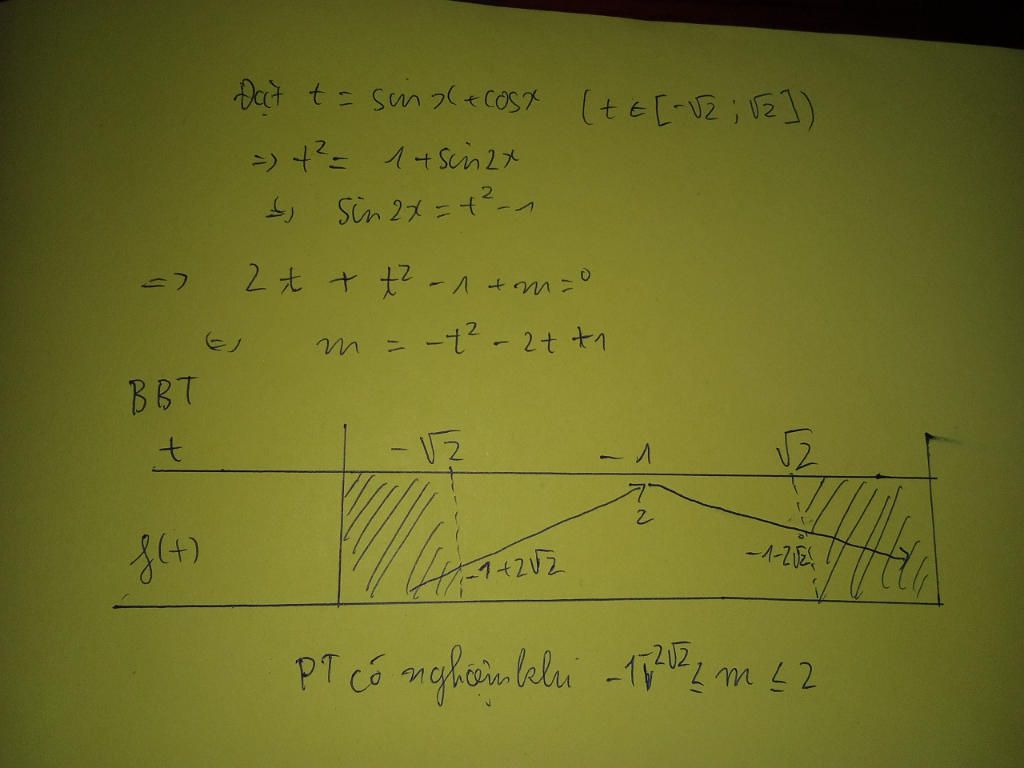 Đặt t = sin x + cosx (t ∈ [-√2 ; √2])
=> t² = 1 + sin2x
<=> sin 2x = t² - 1
=> 2t + t² - 1 + m = 0
<=> m = -t² - 2t + 1
BBT
t -√2 -1 √2
f(t) -1+2√2 2 -1-2√2
PT có nghiệm khi -1-2√2 ≤ m ≤ 2